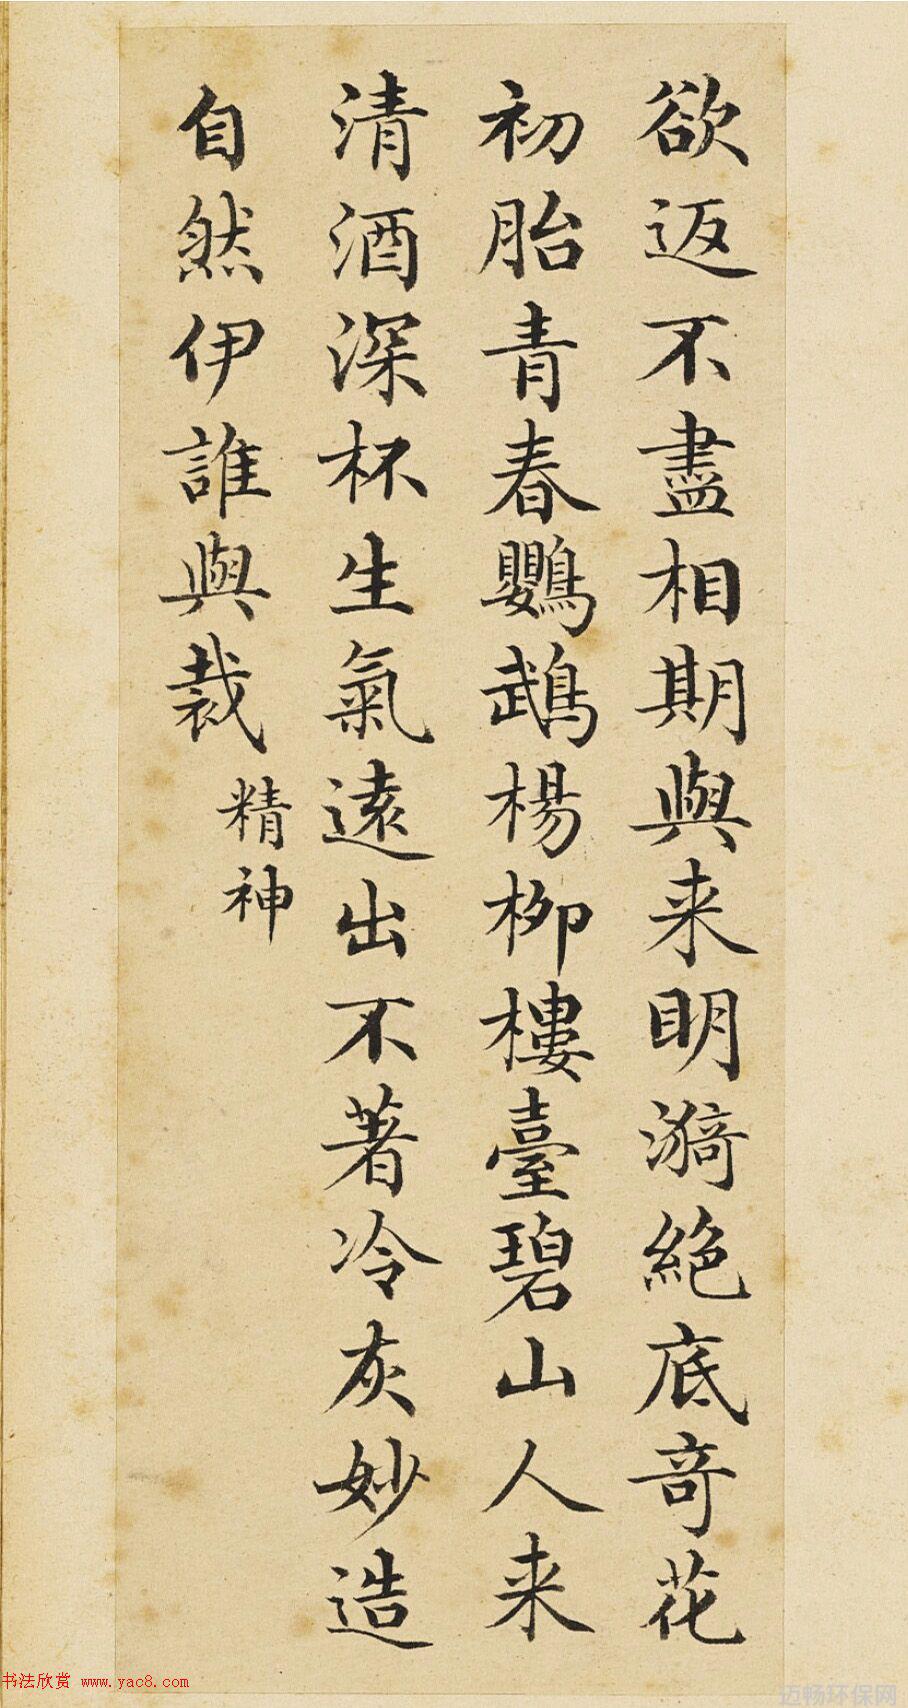 欲返不盡相期與来明漪絶底竒花
初胎青春鸚鵡楊柳樓臺碧山人来
清酒深杯生氣遠出不著冷灰妙造
自然伊誰與裁
精神
书法欣赏 www.yac8.com
迈畅环保网